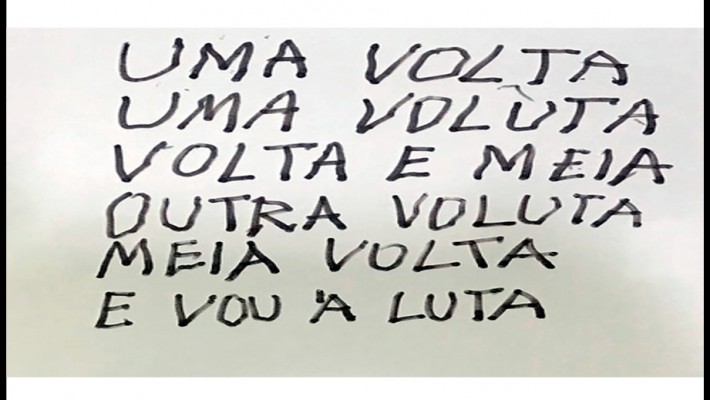 UMA VOLTA
UMA VOLUTA
VOLTA E MEIA
OUTRA VOLUTA
MEIA VOLTA
E VOU À LUTA